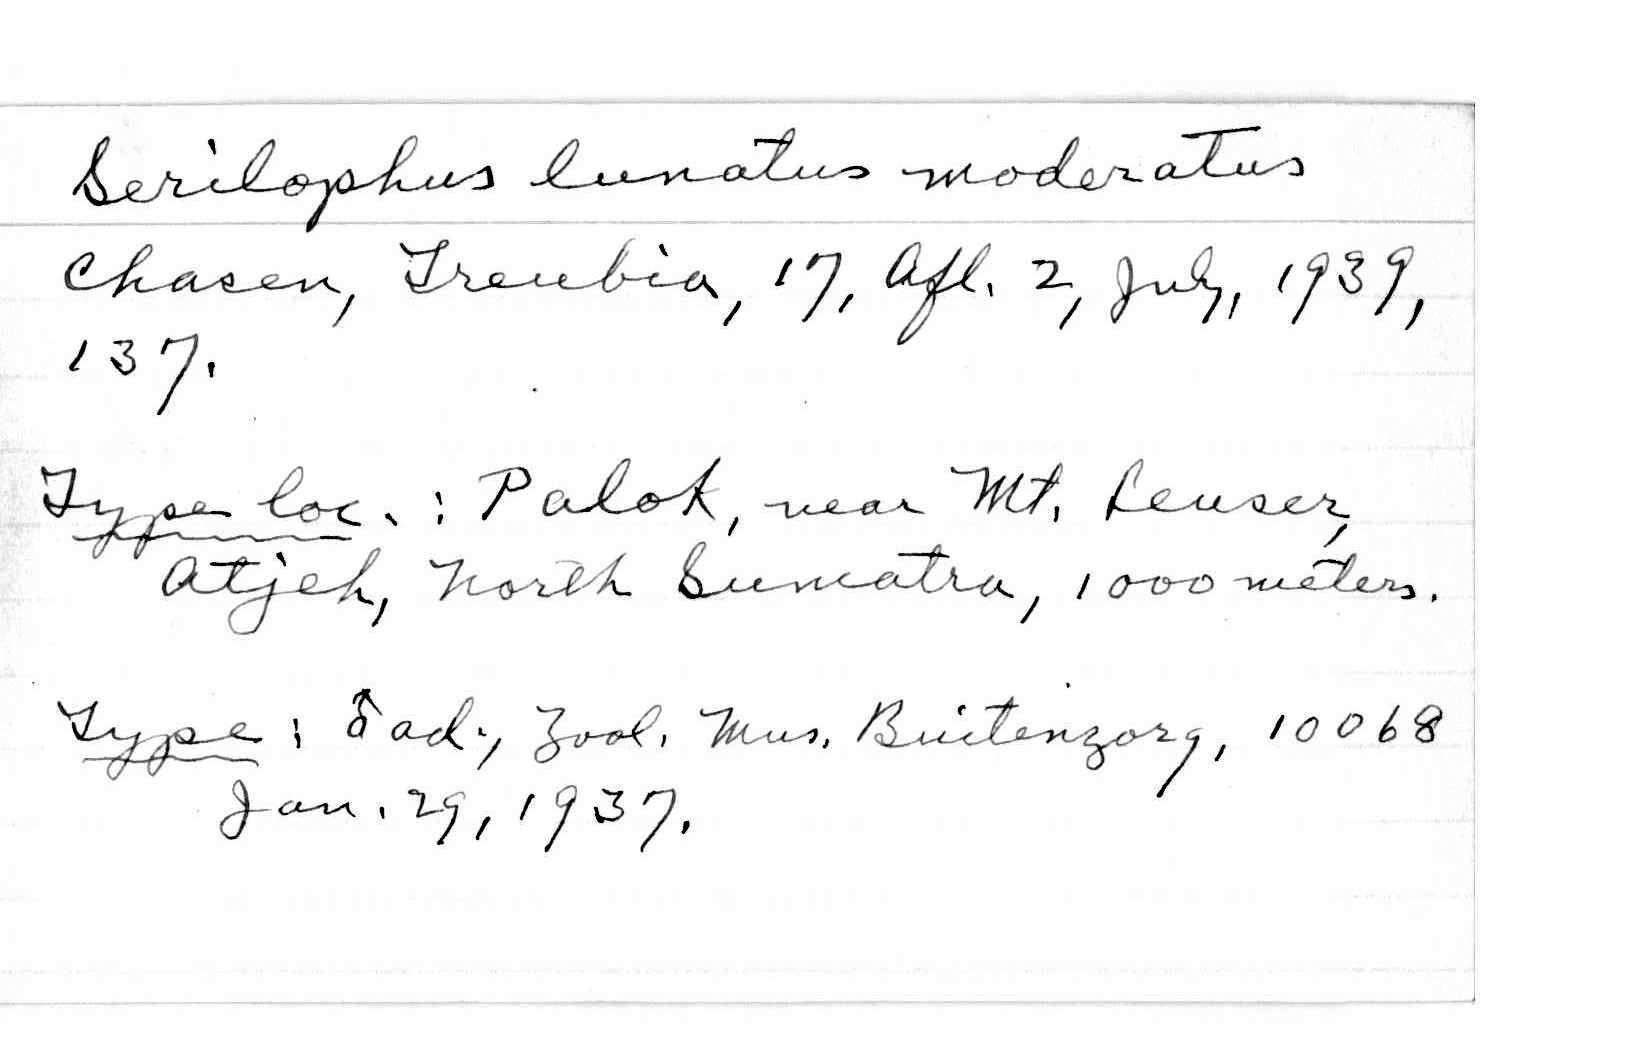 Serilophus lunatus moderatus
Chasen, Treubia, 17, Afl. 2, July, 1939,
137.
Type loc. : Palok, near Mt. Leuser,
Atjeh, North Sumatra, 1000 meters.
Type : ♂ ad., Zool. Mus. Buitenzorg, 10068
Jan. 29, 1937.